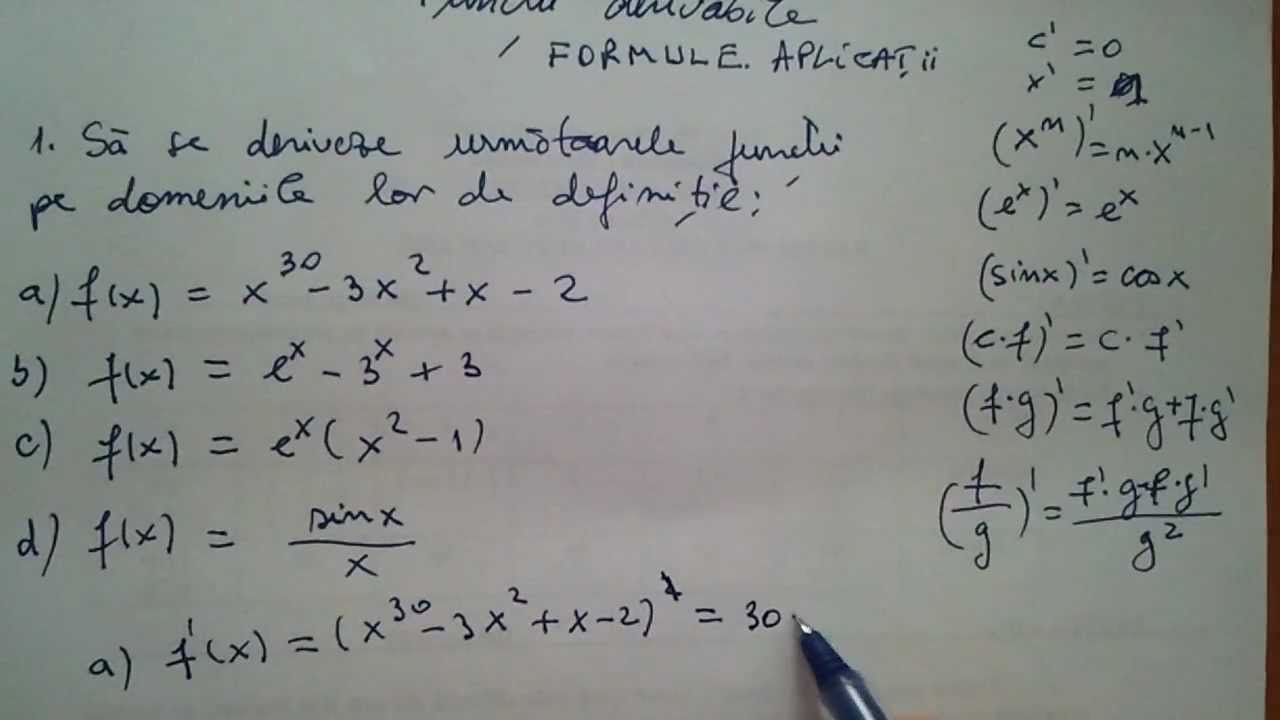 Funcții derivabile
FORMULE. APLICAȚII
1. Să se deriveze următoarele funcții
pe domeniile lor de definiție:
a) f(x) = x^30 - 3x^2 + x - 2
b) f(x) = e^x - 3^x + 3
c) f(x) = e^x (x^2 - 1)
d) f(x) = sinx / x
a) f'(x) = (x^30 - 3x^2 + x - 2)' = 30
c' = 0
x' = 1
(x^n)' = n·x^(n-1)
(e^x)' = e^x
(sinx)' = cosx
(c·f)' = c·f'
(f·g)' = f'·g + f·g'
(f/g)' = (f'·g - f·g') / g^2